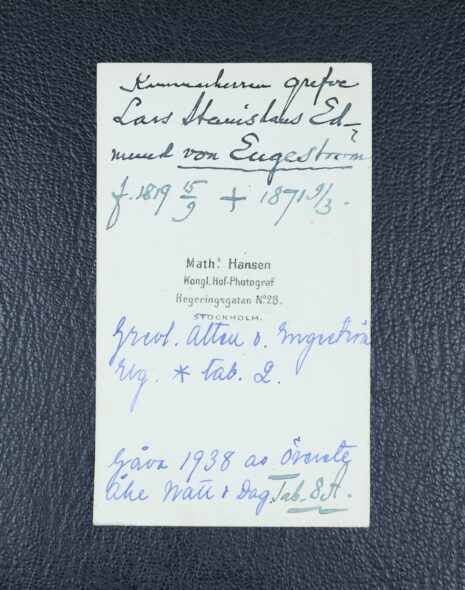 Kammarherren grefve
Lars Stanislaus Ed-
mund von Engeström
f. 1819 15/9 + 1871 9/3.
Math: Hansen
Kongl. Hof-Photograf
Regeringsgatan No 28.
STOCKHOLM.
Grevl. Ätten v. Engeström
* tab. 2.
Gåva 1938 av Överste
Åke Natt o Dag. Tab. 8A.